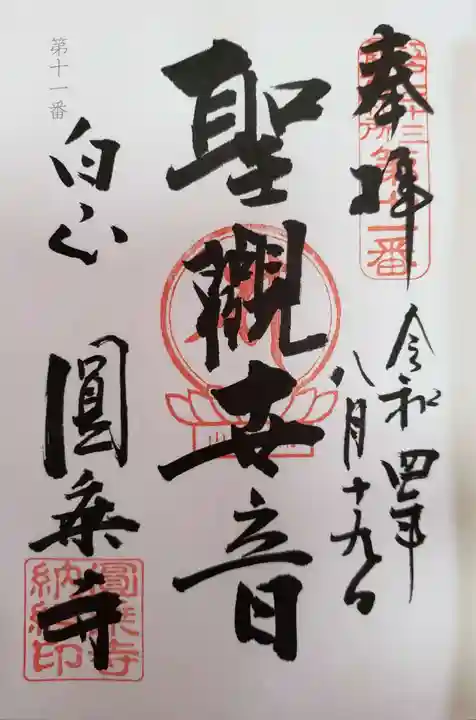 奉拝
令和四年
八月十九日
聖觀世音
白山 圓乗寺
第十一番
圓乗寺納経印